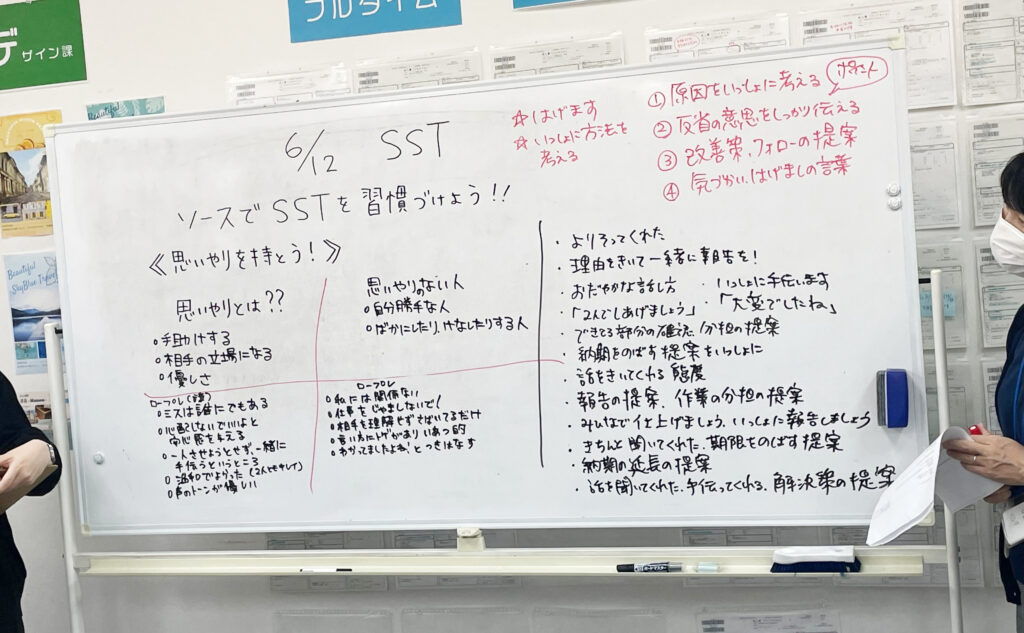 デ サイン課
フルタイム
6/12 SST
ソースでSSTを習慣づけよう!!
《思いやりを持とう!》
☆はげます
☆いっしょに方法を
考える
①原因をいっしょに考える
ポイント
②反省の意思をしっかり伝える
③改善策、フォローの提案
④気づかい、はげましの言葉
思いやりとは??
○手助けする
○相手の立場になる
○優しさ
思いやりのない人
○自分勝手な人
○ばかにしたり、けなしたりする人
ロープレ
○ミスは誰にでもある
○心配しないでいいよと
安心感を与える
○一人させようとせず、一緒に
手伝うというところ
○声のトーンが優しい
ロープレ
○私には関係ない
○仕事をじゃましないで!
○相手を理解せずさばいてるだけ
○言い方にトゲがあり いあつ的
○わかってましたよね、とつきはなす
・よりそってくれた
・理由をきいて一緒に報告を!
・おだやかな話し方
・いっしょに手伝います
・「2人でしあげましょう」
・「大変でしたね」
・できてる部分の確認、分担の提案
・納期をのばす提案をいっしょに
・話をきいてくれる態度
・報告の提案、作業の分担の提案
・みんなで仕上げましょう、いっしょに報告しましょう
・きちんと聞いてくれた、期限をのばす提案
・納期の延長の提案
・話を聞いてくれた、手伝ってくれる、解決策の提案
Beautiful
SkyBlue Travel